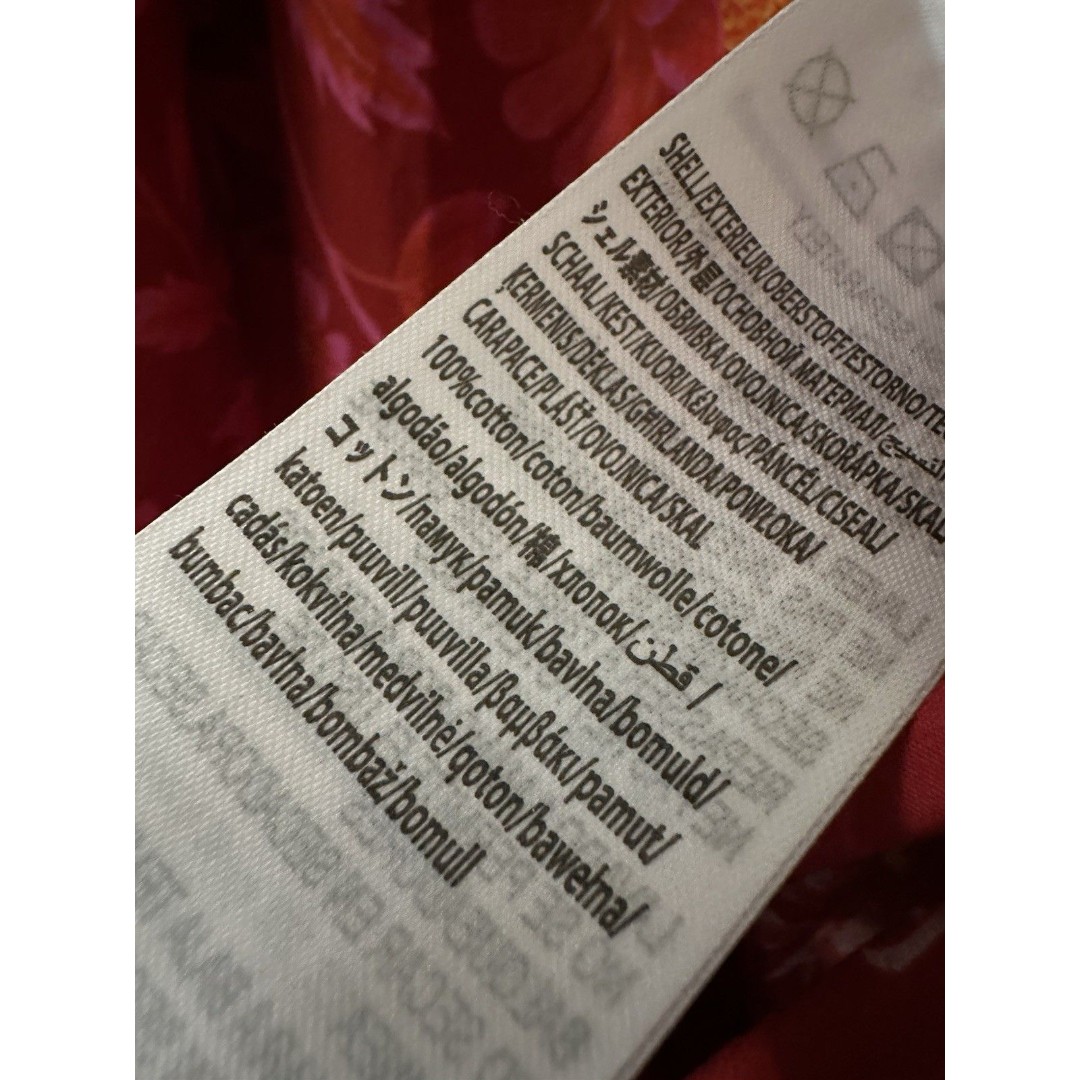 SHELL/EXTERIEUR/OBERSTOFF/ESTORNO/TE
EXTERIOR/外層/ОСНОВНОЙ МАТЕРИАЛ/
シェル素材/ОБВИВКА/OVOJNICA/SKOŘÁPKA/SKAL
SCHAAL/KEST/KUORI/Κέλυφος/PÁNCÉL/CISEAL/
ĶERMENIS/DĖKLAS/GĦIRLANDA/POWŁOKA/
CARAPACE/PLÁŠŤ/OVOJNICA/SKAL
100%cotton/coton/baumwolle/cotone/
algodão/algodón/棉/хлопок/قطن /
コットン/памук/pamuk/bavlna/bomuld/
katoen/puuvill/puuvilla/βαμβάκι/pamut/
cadás/kokvilna/medvilnė/qoton/bawełna/
bumbac/bavlna/bombaž/bomull